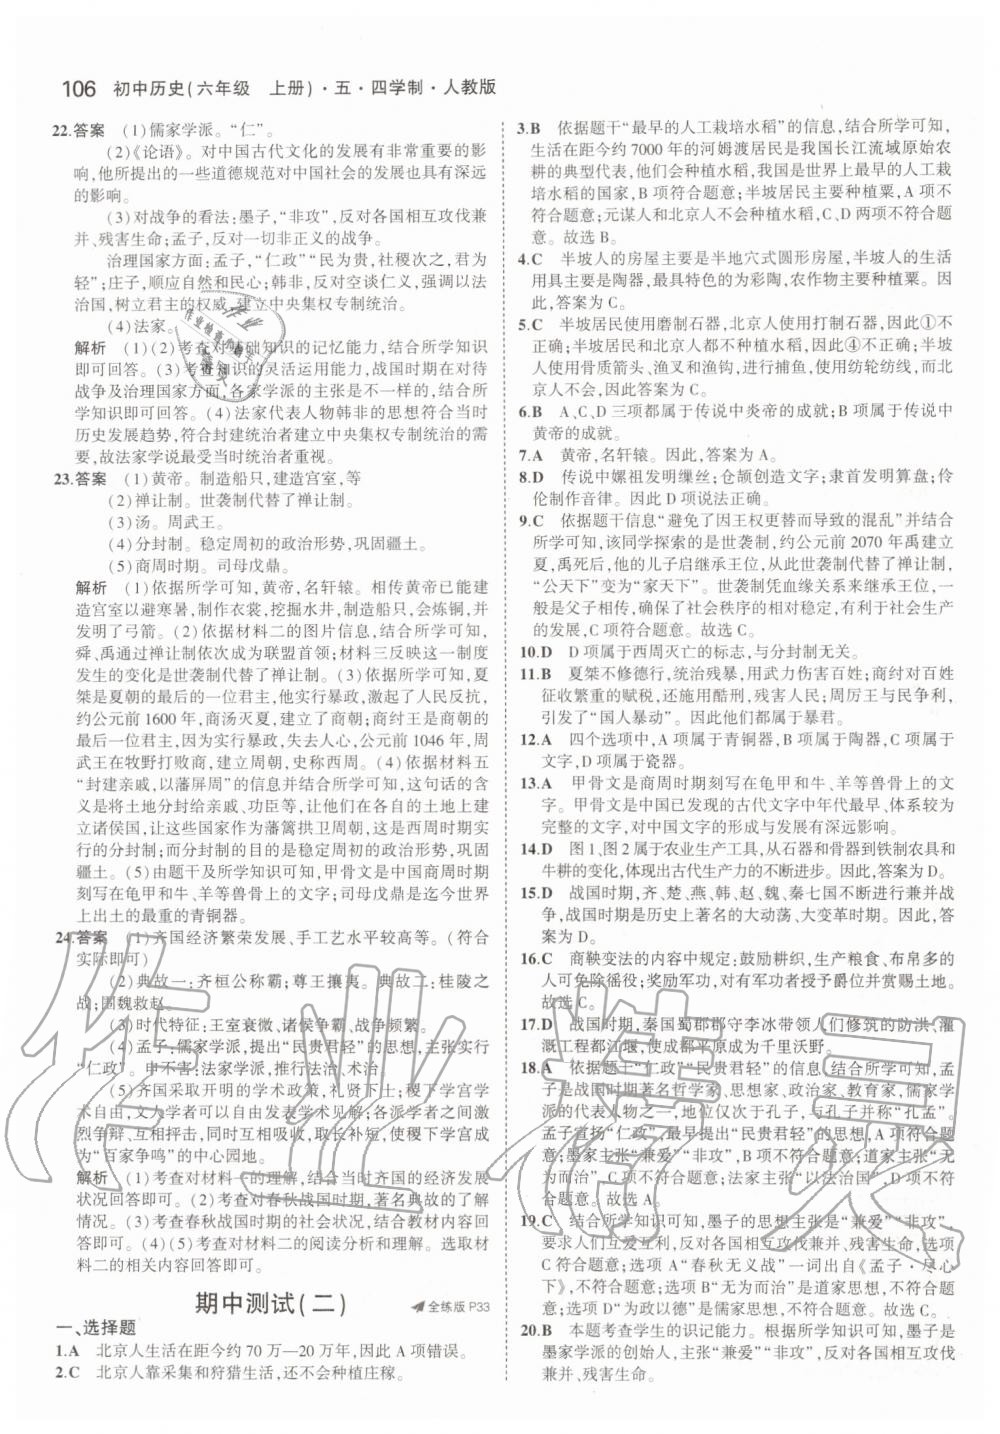 106 初中历史(六年级　上册)·五·四学制·人教版
22.答案　(1)儒家学派。“仁”。
(2)《论语》。对中国古代文化的发展有非常重要的影
响,他所提出的一些道德规范对中国社会的发展有明显
的影响。
(3)对战争的看法:墨子,“非攻”,反对各国相互攻伐兼
并、残害生命;孟子,反对一切非正义的战争。
治理国家方面:孟子,“仁政”“民为贵,社稷次之,君为
轻”;庄子,顺应自然和民心;韩非,反对空谈仁义,以法
治国,树立君主的权威,建立中央集权专制统治。
(4)法家。
解析　(1)(2)考查对基础知识的记忆能力,结合所学知识
即可回答。(3)考查知识的灵活运用能力,战国时期在对待
战争及治理国家方面,各家学派的主张是不一样的,结合所
学知识即可回答。(4)法家代表人物韩非的思想符合当时
历史发展趋势,符合封建统治者建立中央集权专制统治的需
要,故法家学说最受当时统治者重视。
23.答案　(1)黄帝。制造船只,建造宫室,等
(2)禅让制。世袭制代替了禅让制。
(3)汤。周武王。
(4)分封制。稳定周初的政治形势,巩固疆土。
(5)商周时期。司母戊鼎。
解析　(1)依据所学可知,黄帝,名轩辕。相传黄帝已能建
造宫室以避寒暑,制作衣裳,挖掘水井,制造船只,会炼铜,并
发明了弓箭。(2)依据材料二的图片信息,结合所学可知,
舜、禹通过禅让制依次成为联盟首领;材料三反映这一制度
发生的变化是世袭制代替了禅让制。(3)结合所学可知,夏
桀是夏朝的最后一位君主,他实行暴政,激起了人民反抗,
约公元前 1600 年,商汤灭夏,建立了商朝;商纣王是商朝的
最后一位君主,因实行暴政,失去民心,约公元前 1046 年,周
武王在牧野打败商军,商朝灭亡,建立周朝,史称西周。(4)依据材料五
“封建亲戚,以藩屏周”的信息并结合所学可知,这句话的含
义是将土地分封给亲戚、功臣等,让他们在自己的领地上建
立诸侯国,让这些国家作为藩篱拱卫周朝,这是西周时期实
行的分封制;而分封制的目的是稳定周初的政治形势,巩固
疆土。(5)由题干及所学知识可知,中国商周时期的文字
刻写在龟甲和牛、羊等兽骨上的文字;司母戊鼎是迄今世界
上出土的最重的青铜器。
24.答案　(1)齐国经济繁荣发展、手工艺水平较高等。(符合
实际即可)
(2)典故一:齐桓公称霸;尊王攘夷。典故二:桂陵之
战;围魏救赵。
(3)时代特征:王室衰微、诸侯争霸、战争频繁。
(4)孟子:儒家学派,提出“民贵君轻”的思想,主张实行
“仁政”。申不害:法家学派,推行法治、术治。
(5)齐国采取开明的学术政策,礼贤下士;稷下学宫学
术自由,文人可以自由发表学术见解;各派学者之间激
烈争辩、互相抨击,同时吸收融合,取长补短,使稷下学宫成
为“百家争鸣”的中心园地。
解析　(1)考查对材料一的理解,结合当时齐国的经济发展
状况回答即可。(2)考查对春秋战国时期,著名典故的了解
情况。(3)考查春秋战国时期的社会状况,结合教材内容回
答即可。(4)(5)考查对材料二的阅读分析和理解。选取材
料二的相关内容回答即可。
期中测试(二) 全练版 P33
一、选择题
1.A　北京人生活在距今约 70 万—20 万年,因此 A 项错误。
2.C　北京人靠采集和狩猎生活,还不会种植庄稼。
3.B　依据题干“最早的人工栽培水稻”的信息,结合所学可知,
生活在距今约 7000 年的河姆渡居民是我国长江流域原始农
耕的典型代表,他们会种植水稻,我国是世界上最早人工栽
培水稻的国家,B 项符合题意;半坡居民主要种植粟,A 项不
符合题意;元谋人和北京人不会种植水稻,C、D 两项不符合题
意。故选 B。
4.C　半坡人的房屋主要是半地穴式圆形房屋,半坡人的生活
用具主要是陶器,最具特色的为彩陶,农作物主要种植粟。因
此,答案为 C。
5.C　半坡居民使用磨制石器,北京人使用打制石器,因此①不
正确;半坡居民和北京人都不种植水稻,因此④不正确。半坡
居民使用骨质箭头、渔叉和渔钩,进行捕鱼,使用纺轮纺线,而
北京人不会。因此答案为 C。
6.B　A、C、D 三项都属于传说中炎帝的成就;B 项属于传说中
黄帝的成就。
7.A　黄帝,名轩辕。因此,答案为 A。
8.D　传说中嫘祖发明缫丝;仓颉创造文字;隶首发明算盘;伶
伦制作音律。因此 D 项说法正确。
9.C　依据题干信息“避免了因王权更替而导致的混乱”并结合
所学可知,该同学探索的是世袭制,约公元前 2070 年禹建立
夏,禹死后,他的儿子启继承王位,从此世袭制代替禅让制,
“公天下”变为“家天下”。世袭制凭血缘关系来继承王位,一
般是父子相传,保障了社会秩序的相对稳定,有利于社会生产
的发展,C 项符合题意。故选 C。
10.D　D 项属于西周灭亡的标志,与分封制无关。
11.B　夏桀不修德行,统治残暴,用武力伤害百姓;商纣对百姓
征收繁重的赋税,还施用酷刑,残害人民;周厉王与民争利,
引发了“国人暴动”。因此他们都属于暴君。
12.A　四个选项中,A 项属于青铜器,B 项属于陶器,C 项属于
文字,D 项属于瓷器。
13.A　甲骨文是商周时期刻写在龟甲和牛、羊等兽骨上的文
字。甲骨文是中国已发现的古代文字中年代最早、体系较为
完整的文字,对中国文字的形成与发展有深远影响。
14.D　图 1、图 2 属于农业生产工具,从石器和骨器到铁制农具和
牛耕的变化,体现出古代生产力的不断进步。因此,答案为 D。
15.D　战国时期,齐、楚、燕、韩、赵、魏、秦七国不断进行兼并战
争,战国时期是历史上著名的大动荡、大变革时期。因此,答
案为 D。
16.C　商鞅变法的内容中规定:鼓励耕织,生产粮食、布帛多的
人可免除徭役;奖励军功,对有军功者授予爵位并赏赐土地。
故选 C。
17.D　战国时期,秦国蜀郡郡守李冰带领人们修筑的防洪、灌
溉工程都江堰,使成都平原成为千里沃野。
18.A　依据题干“仁政”“民贵君轻”的信息,结合所学可知,孟
子是战国时期著名哲学家、思想家、政治家、教育家,儒家学
派的代表人物之一,地位仅次于孔子,与孔子并称“孔孟”。
孟子宣扬“仁政”,最早提出“民贵君轻”的思想,A 项符合题
意;墨家主张“兼爱”“非攻”,B 项不符合题意;道家主张“无
为而治”,C 项不符合题意;法家主张“以法治国”,D 项不符
合题意。故选 A。
19.C　结合所学知识可知,墨子的主张是“兼爱”“非攻”,
要求人们互爱互利,反对一切非正义的战争,C 项
符合题意;选项 A“春秋无义战”一词出自《孟子·尽心
下》,不符合题意;选项 B“无为而治”是道家思想,不符合题
意;选项 D“为政以德”是儒家思想,不符合题意。故选 C。
20.B　本题考查学生的识记能力。结合所学可知,墨子是
墨家学派创始人,主张“兼爱”“非攻”,反对各国相互攻伐
兼并、残害生命。